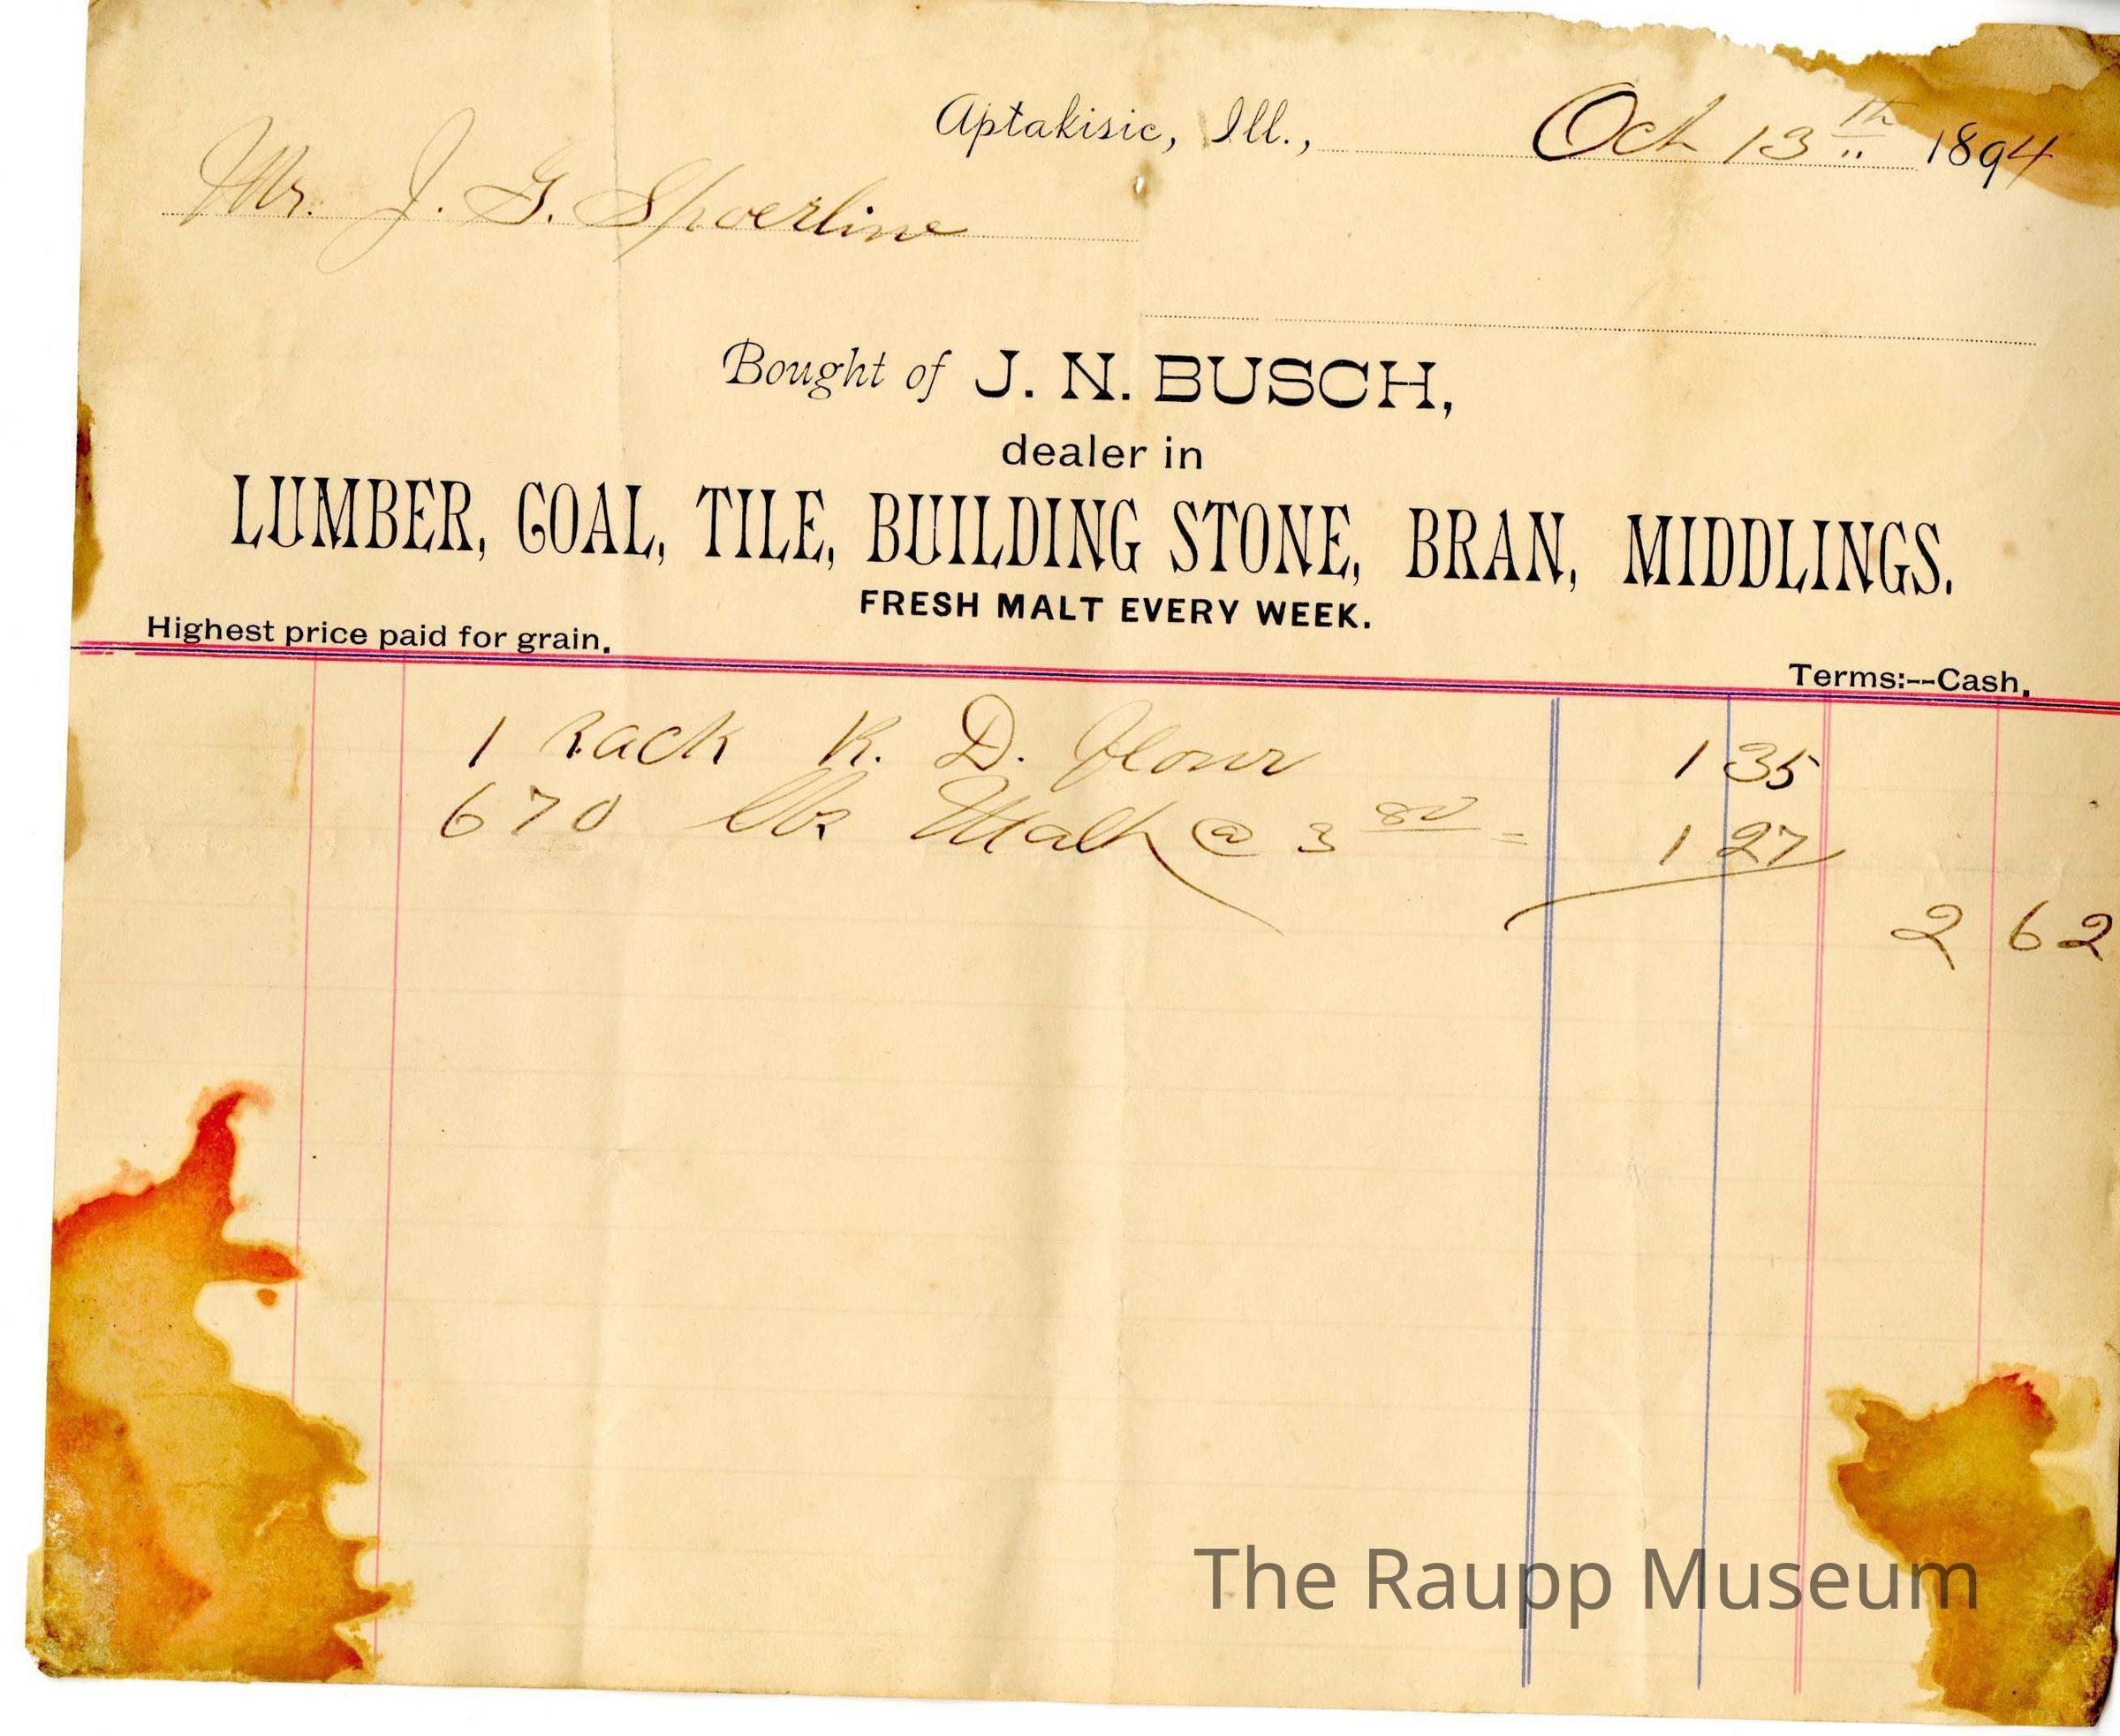 Aptakisic, Ill., Oct 13th 1894
Mr. J. G. Spoerline
Bought of J. N. BUSCH,
dealer in
LUMBER, COAL, TILE, BUILDING STONE, BRAN, MIDDLINGS.
FRESH MALT EVERY WEEK.
Highest price paid for grain.
Terms:--Cash.
1 sack R. D. flour 1 35
670 lbs Malt @ 3 80 = 1 27
2 62
The Raupp Museum